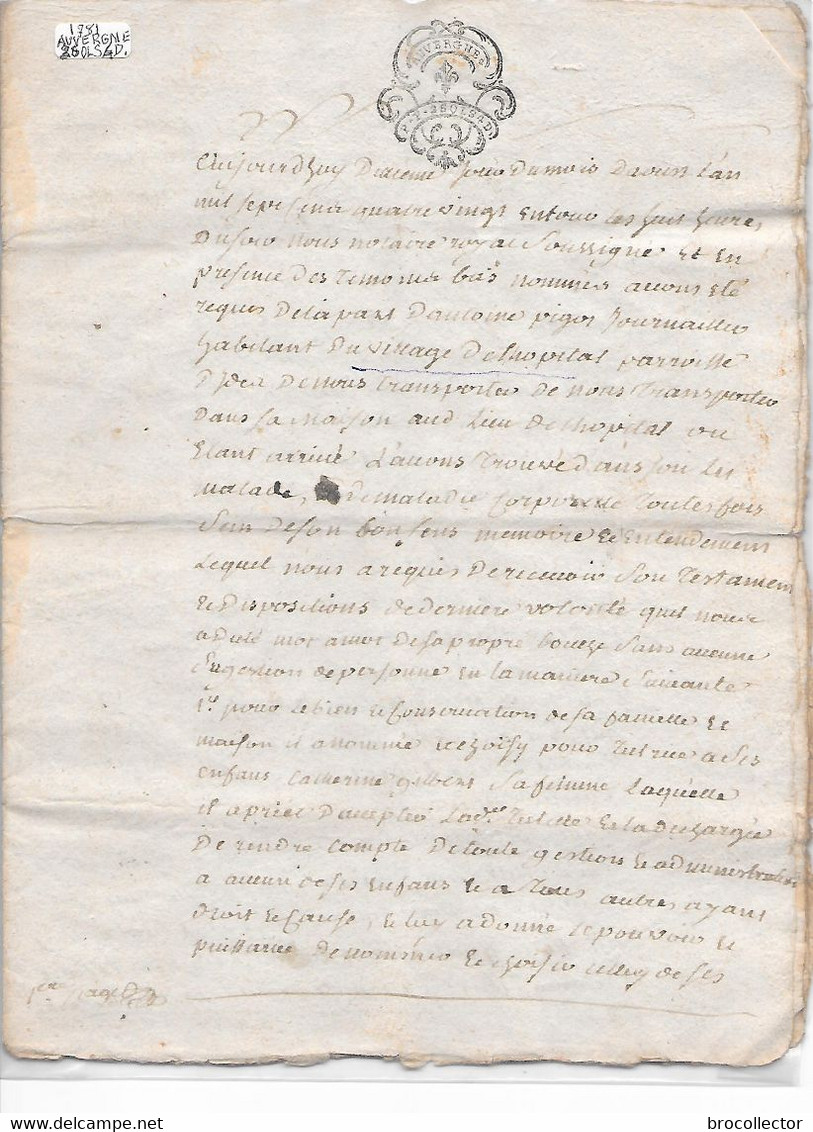 1781
AUVERGNE
2SOLS4D.
AUVERGNE
P.P. 2SOLS4D.
Aujourdhuy Dixieme jour du mois Daoust Lan
mil sept sens quatre vingt Environ les huit heures
Du soir nous notaire royal Soussigné Et En
presence des temoins bas nommés avons Eté
requis Dela part Dantoine pigot Journaillier
habitant Du village De lhopital parroisse
De nous transporter De nous transporter
Dans sa maison aud lieu De lhopital ou
Etant arrivé Lavons trouvé dans son lit
malade, De maladie Corporelle toutesfois
sain De son bon sens memoire Et Entendement
Lequel nous a requis De recevoir Son testament
Et Dispositions de derniere volonté quil nous
a dicté mot amot De sa propre bouche sans aucune
sugestion de personne En la maniere Suivante
1º pour le bien Et Conservation de sa famille Et
maison il a nommée Et choisy pour tutrice a ses
enfans Catherine gilbert Sa femme Laquelle
il a priée Daccepter Lad. tutelle Et la dechargée
De rendre Compte De toute gestion Et administration
a aucun de ses Enfans Et a tous autres ayant
droit Et Cause, Et luy a donné Le pouvoir Et
puissance De nommer Et choisir celluy de ses
pere page
brocollector